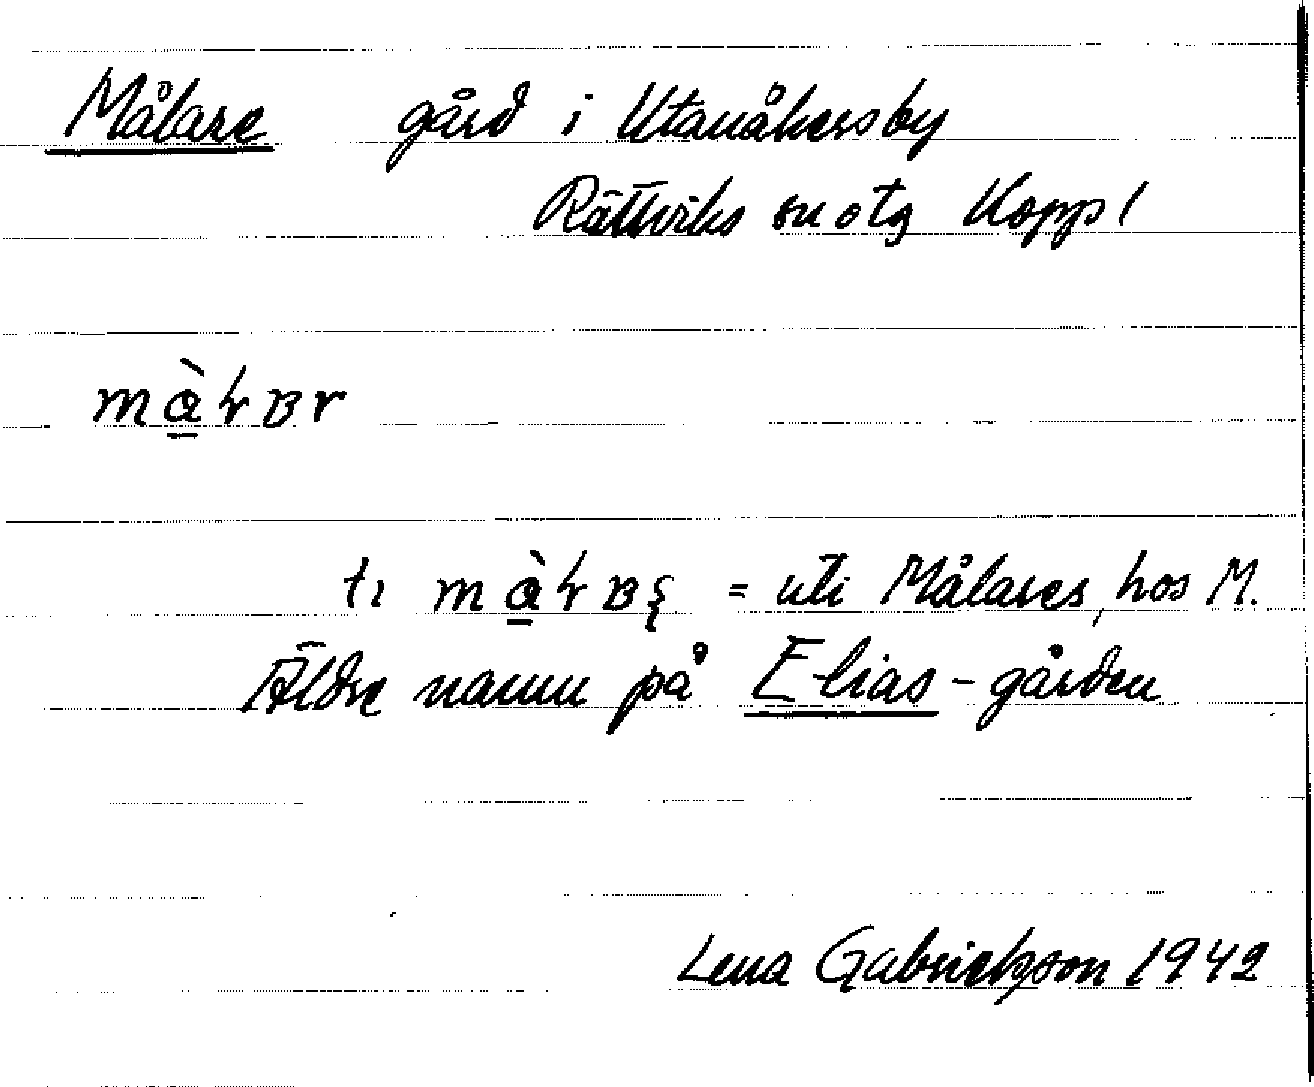 Målare gård i Utanåkersby
Rättviks sn o tg Kopp l
màɽʙr
tı màɽʙ = uti Målares, hos M.
Äldre namn på Elias-gården
Lena Gabrielsson 1942